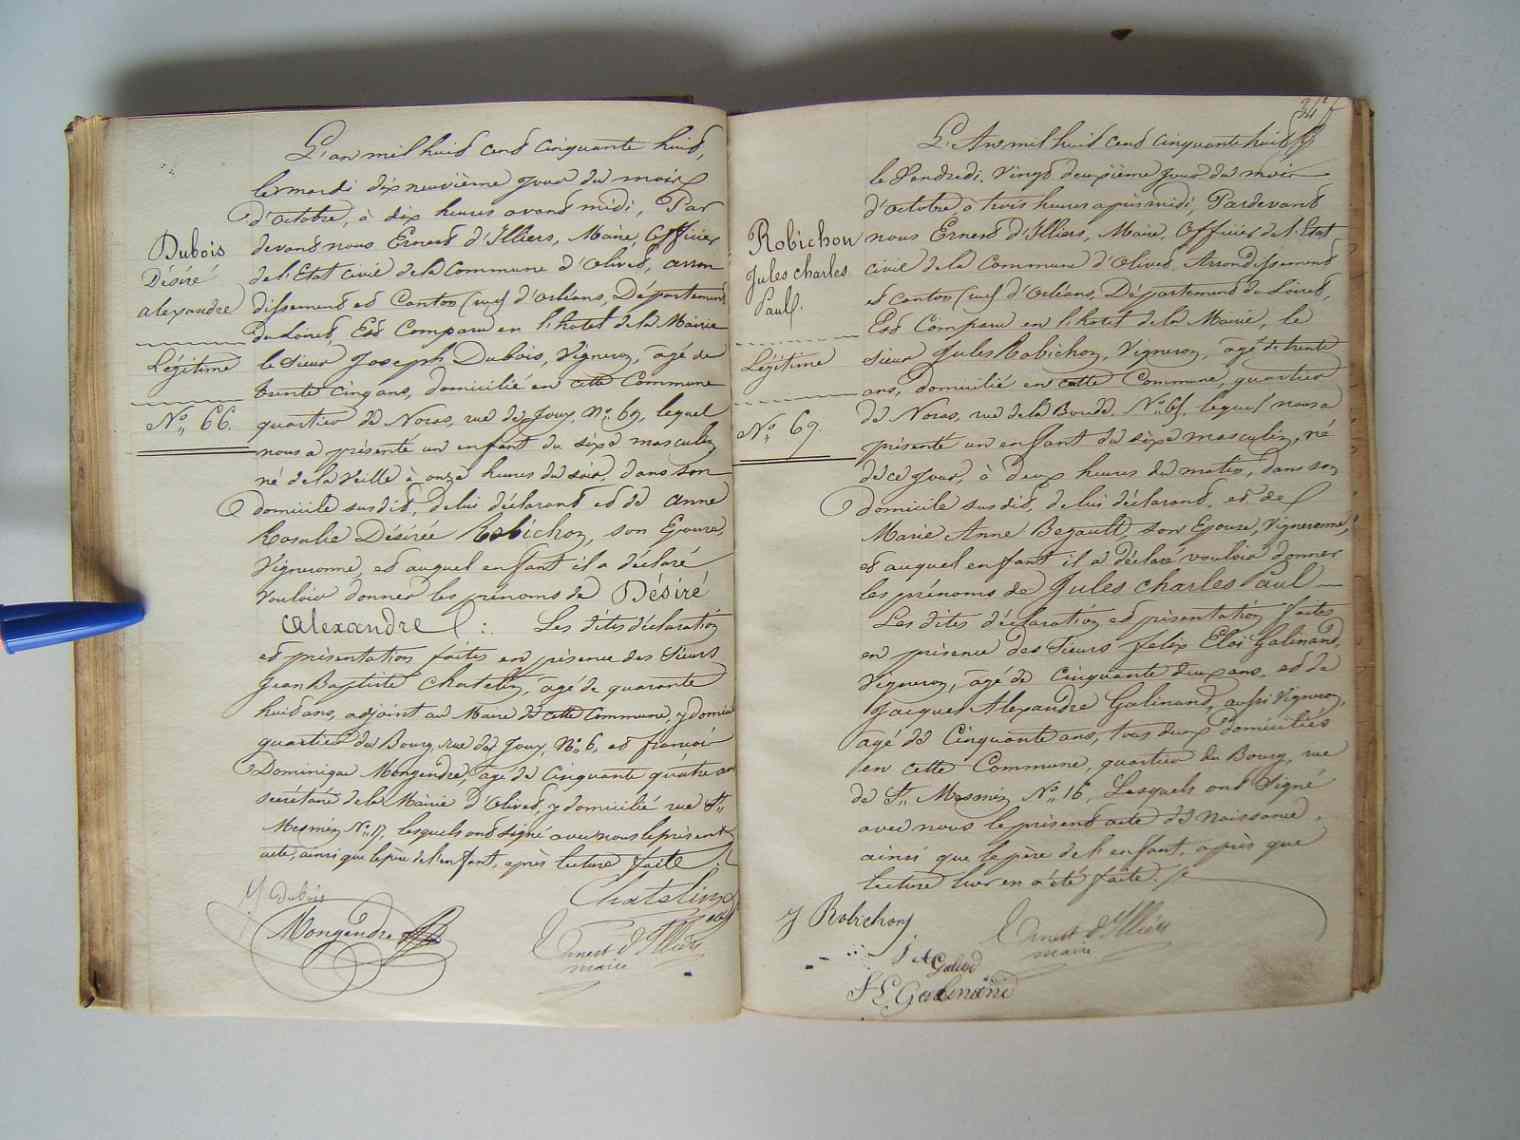 Dubois
Désiré
alexandre
Légitime
N° 66.
L'an mil huit cent cinquante huit,
le mardi dix neuvième jour du mois
d'octobre, à dix heures avant midi, Par
devant nous Ernest d'Illiers, Maire, Officier
de l'Etat civil de la Commune d'Olivet, arron
dissement et Canton (sud) d'Orléans, Département
du Loiret, Est Comparu en l'hotel de la Mairie
le Sieur Joseph Dubois, Vigneron, âgé de
trente cinq ans, domicilié en cette Commune
quartier de Noras, rue des Joux, N° 69, lequel
nous a présenté un enfant du sexe masculin
né de la veille à onze heures du soir, dans son
domicile susdit, de lui déclarant et de Anne
Rosalie Désirée Robichon, son Epouse,
Vigneronne, et auquel enfant il a déclaré
vouloir donner les prénoms de Désiré
alexandre : Les dites déclaration
et présentation faites en présence des Sieurs
Jean Baptiste Chatelin, âgé de quarante
huit ans, adjoint au Maire de cette Commune, y domicié
quartier du Bourg, rue des Joux, N° 6, et françois
Dominique Mongendre, âgé de cinquante quatre ans
secrétaire de la Mairie d'Olivet, y domicilié rue St
Mesmin N° 17, lesquels ont signé avec nous le présent
acte, ainsi que le père de l'enfant, après lecture faite
Dubois
Chatelin
Mongendre
Ernest d'Illiers
maire
34
Robichon
Jules charles
Paul.
Légitime
N° 69.
L'An mil huit cent cinquante huit
le Vendredi, Vingt deuxième jour du mois
d'octobre, à trois heures après midi, Pardevant
nous Ernest d'Illiers, Maire, Officier de l'Etat
civil de la Commune d'Olivet, Arrondissement
et canton (sud) d'Orléans, Département du Loiret,
Est Comparu en l'hotel de la Mairie, le
sieur Jules Robichon, Vigneron, âgé de trente
ans, domicilié en cette Commune, quartier
de Noras, rue de la N° 61, lequel nous a
présenté un enfant du sexe masculin, né
de ce jour, à deux heures du matin, dans son
domicile susdit, de lui déclarant, et de
Marie Anne Begault, son Epouse, Vigneronne,
et auquel enfant il a déclaré vouloir donner
les prénoms de Jules charles Paul
Les dites déclaration et présentation faites
en présence des Sieurs felix Eloi Galinand,
Vigneron, âgé de Cinquante deux ans, et de
Jacques Alexandre Galinand, aussi Vigneron,
âgé de Cinquante ans, tous deux domiciliés
en cette Commune, quartier du Bourg, rue
de St Mesmin N° 16, Lesquels ont Signé
avec nous le présent acte de Naissance,
ainsi que le père de l'enfant, après que
lecture leur en a été faite.
J Robichon
Ernest d'Illiers
maire
J A
F E Galinand